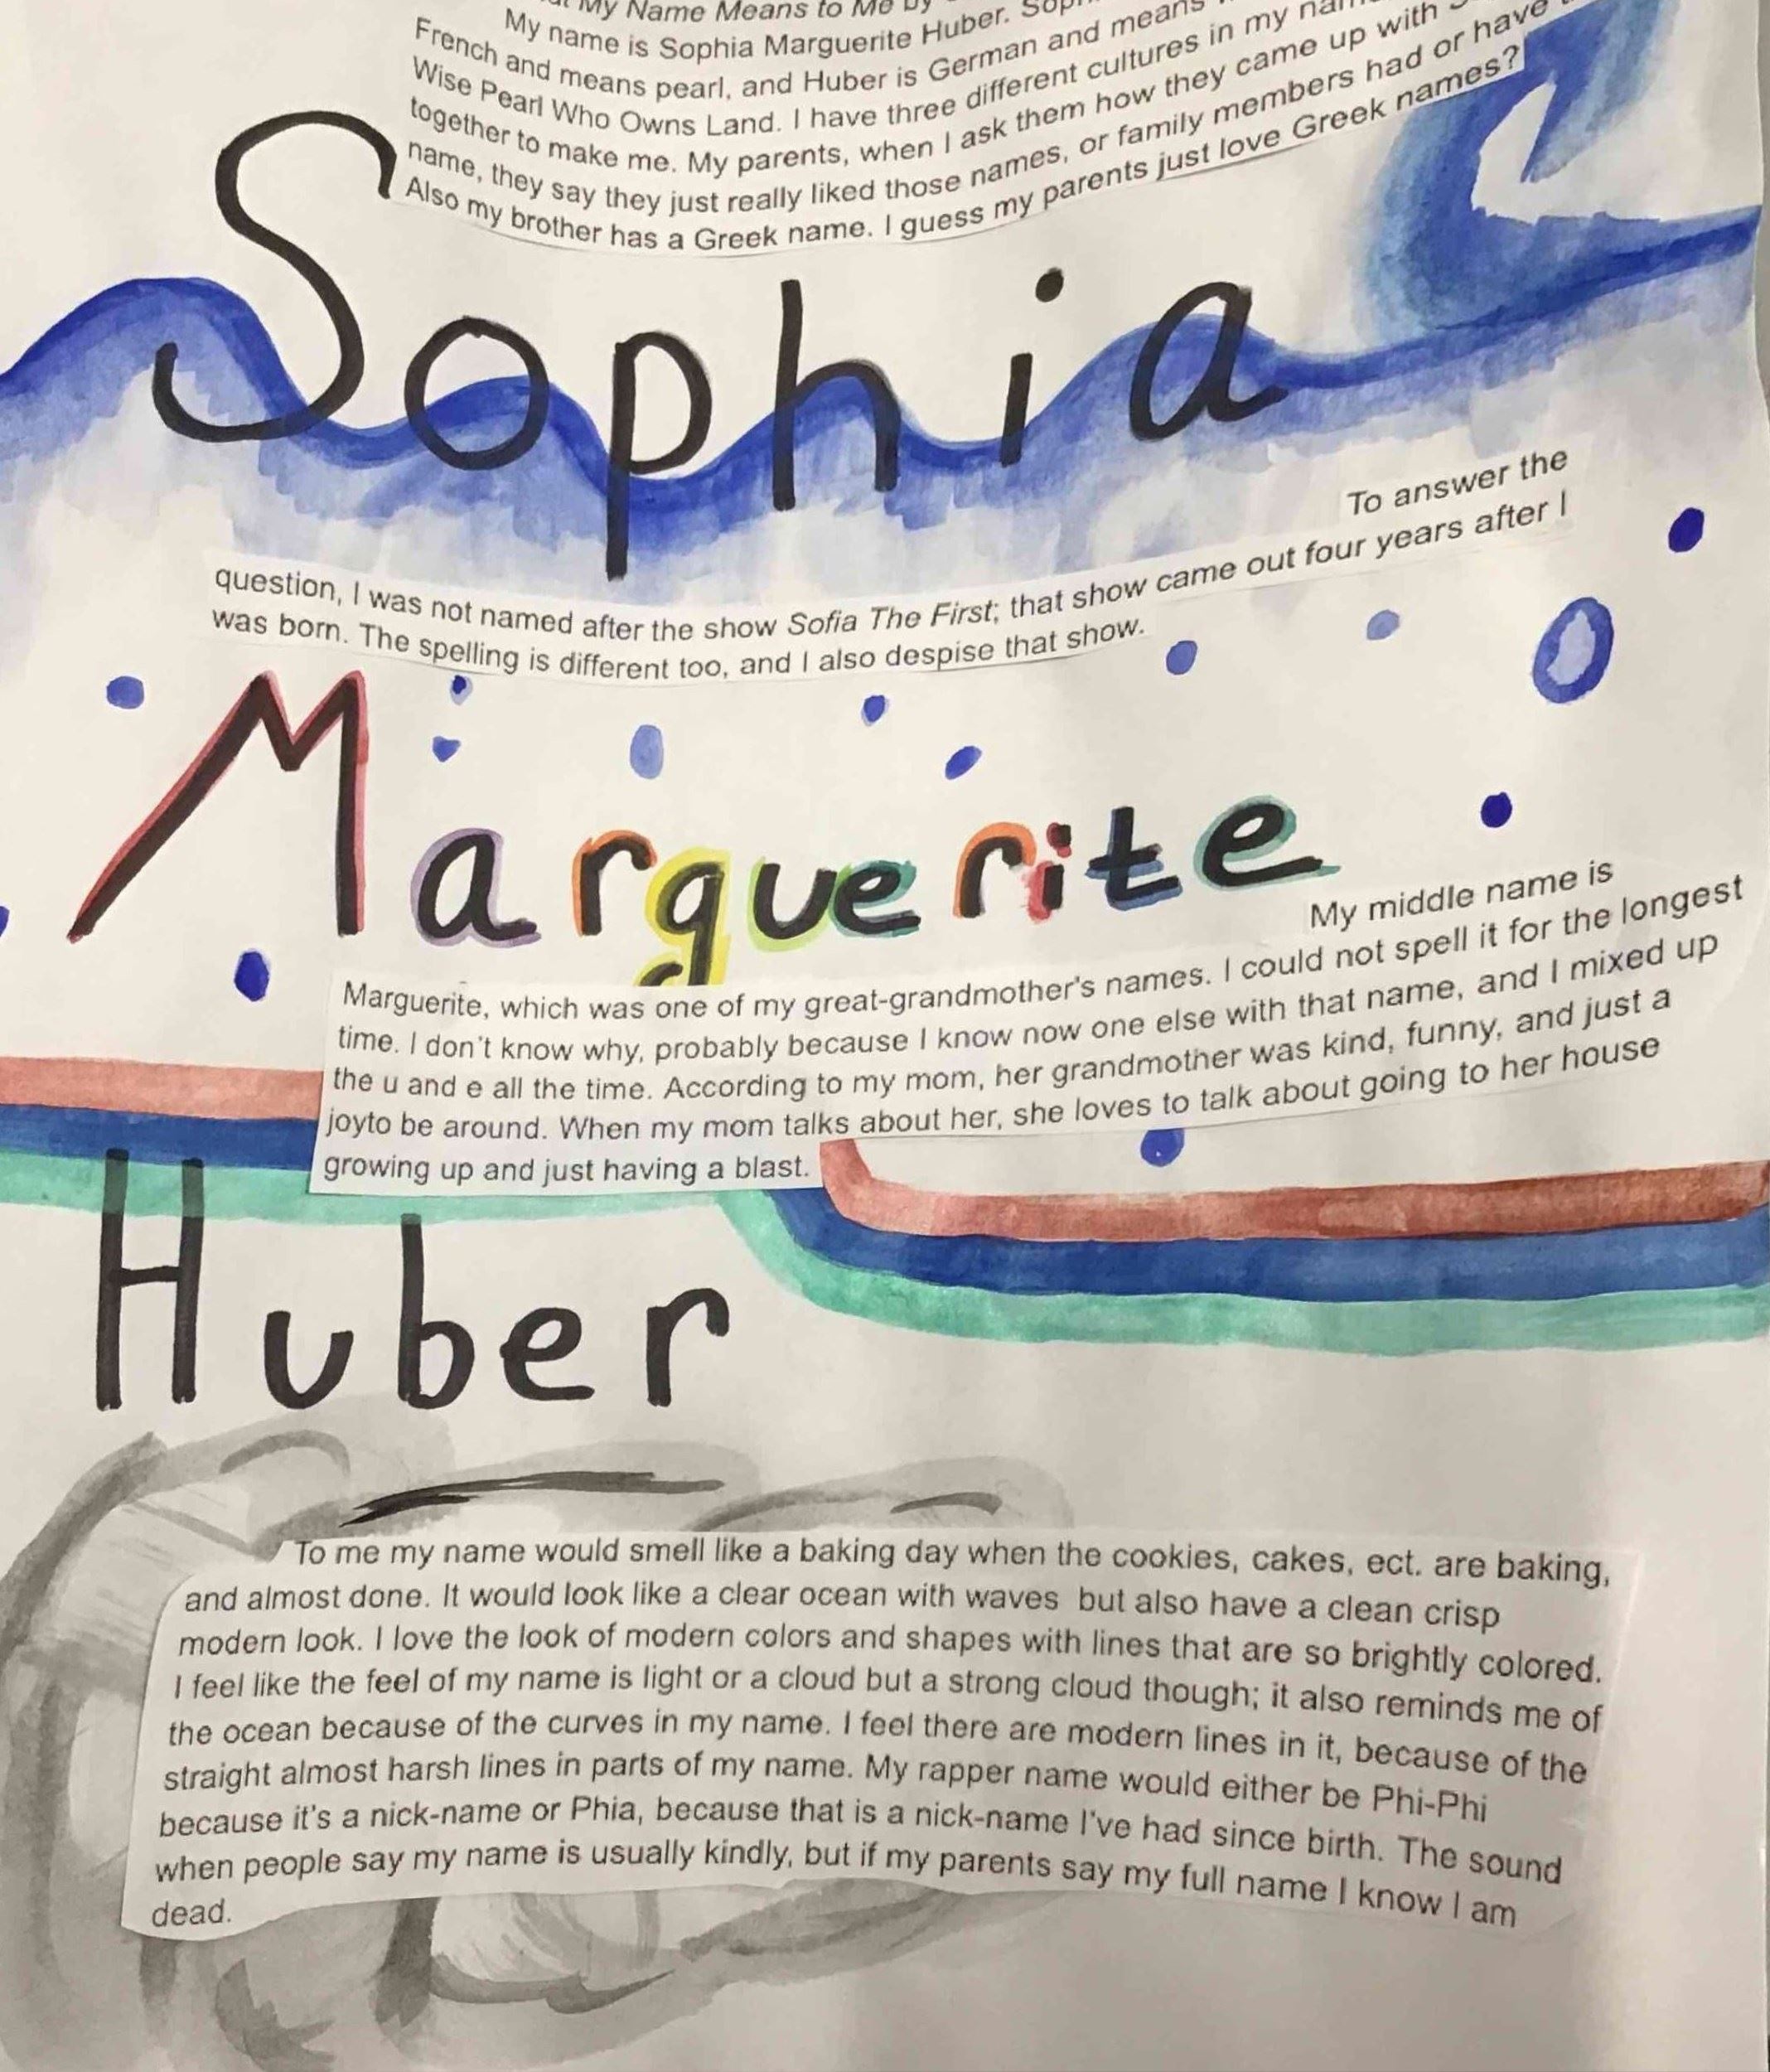 My Name Means to Me by
My name is Sophia Marguerite Huber.
French and means pearl, and Huber is German and means
Wise Pearl Who Owns Land. I have three different cultures in my
together to make me. My parents, when I ask them how they came up with
name, they say they just really liked those names, or family members had or have
Also my brother has a Greek name. I guess my parents just love Greek names?
Sophia
To answer the
question, I was not named after the show Sofia The First; that show came out four years after I
was born. The spelling is different too, and I also despise that show.
Marguerite
My middle name is
Marguerite, which was one of my great-grandmother's names. I could not spell it for the longest
time. I don't know why, probably because I know now one else with that name, and I mixed up
the u and e all the time. According to my mom, her grandmother was kind, funny, and just a
joyto be around. When my mom talks about her, she loves to talk about going to her house
growing up and just having a blast.
Huber
To me my name would smell like a baking day when the cookies, cakes, ect. are baking,
and almost done. It would look like a clear ocean with waves but also have a clean crisp
modern look. I love the look of modern colors and shapes with lines that are so brightly colored.
I feel like the feel of my name is light or a cloud but a strong cloud though; it also reminds me of
the ocean because of the curves in my name. I feel there are modern lines in it, because of the
straight almost harsh lines in parts of my name. My rapper name would either be Phi-Phi
because it's a nick-name or Phia, because that is a nick-name I've had since birth. The sound
when people say my name is usually kindly, but if my parents say my full name I know I am
dead.